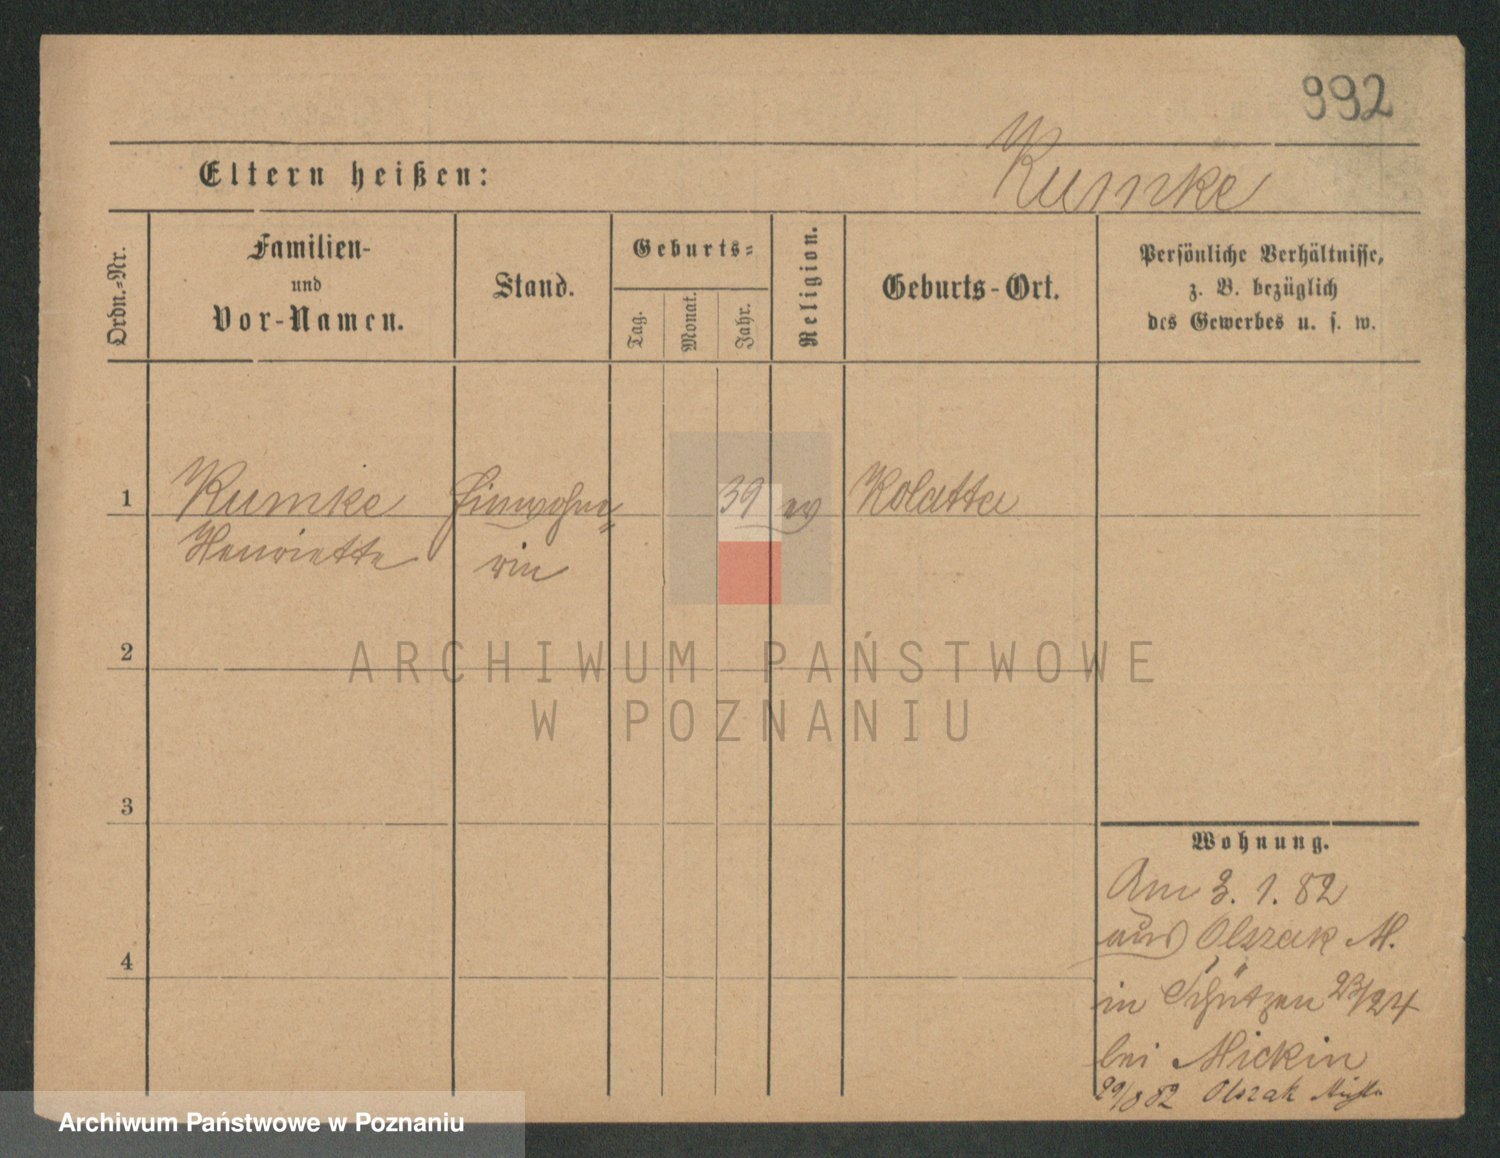 992
Eltern heißen:
Rumke
Ordn.-Nr.
Familien-
und
Vor-Namen.
Stand.
Geburts-
Tag.
Monat.
Jahr.
Religion.
Geburts-Ort.
Persönliche Verhältnisse,
z. B. bezüglich
des Gewerbes u. s. w.
1
Rumke
Einwohne-
39
ev
Kolatta
Henriette
rin
2
ARCHIWUM PAŃSTWOWE
W POZNANIU
3
Wohnung.
Am 3. 1. 82
aus Olszak M.
4
in Schützen 23/24
bei Mickin
29/8 82 Olszak
Archiwum Państwowe w Poznaniu